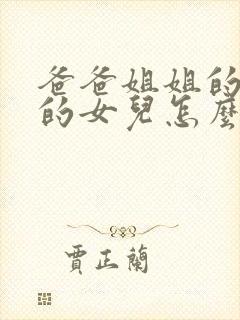 爸爸姐姐的
的女兒怎麼
賈正蘭